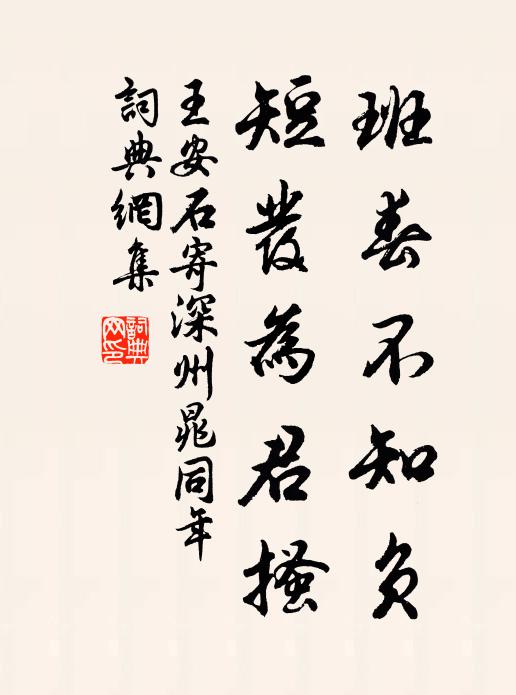 班春不知負
短發為君搔
王安石寄深州晁同年
詞典網集
詞典网印